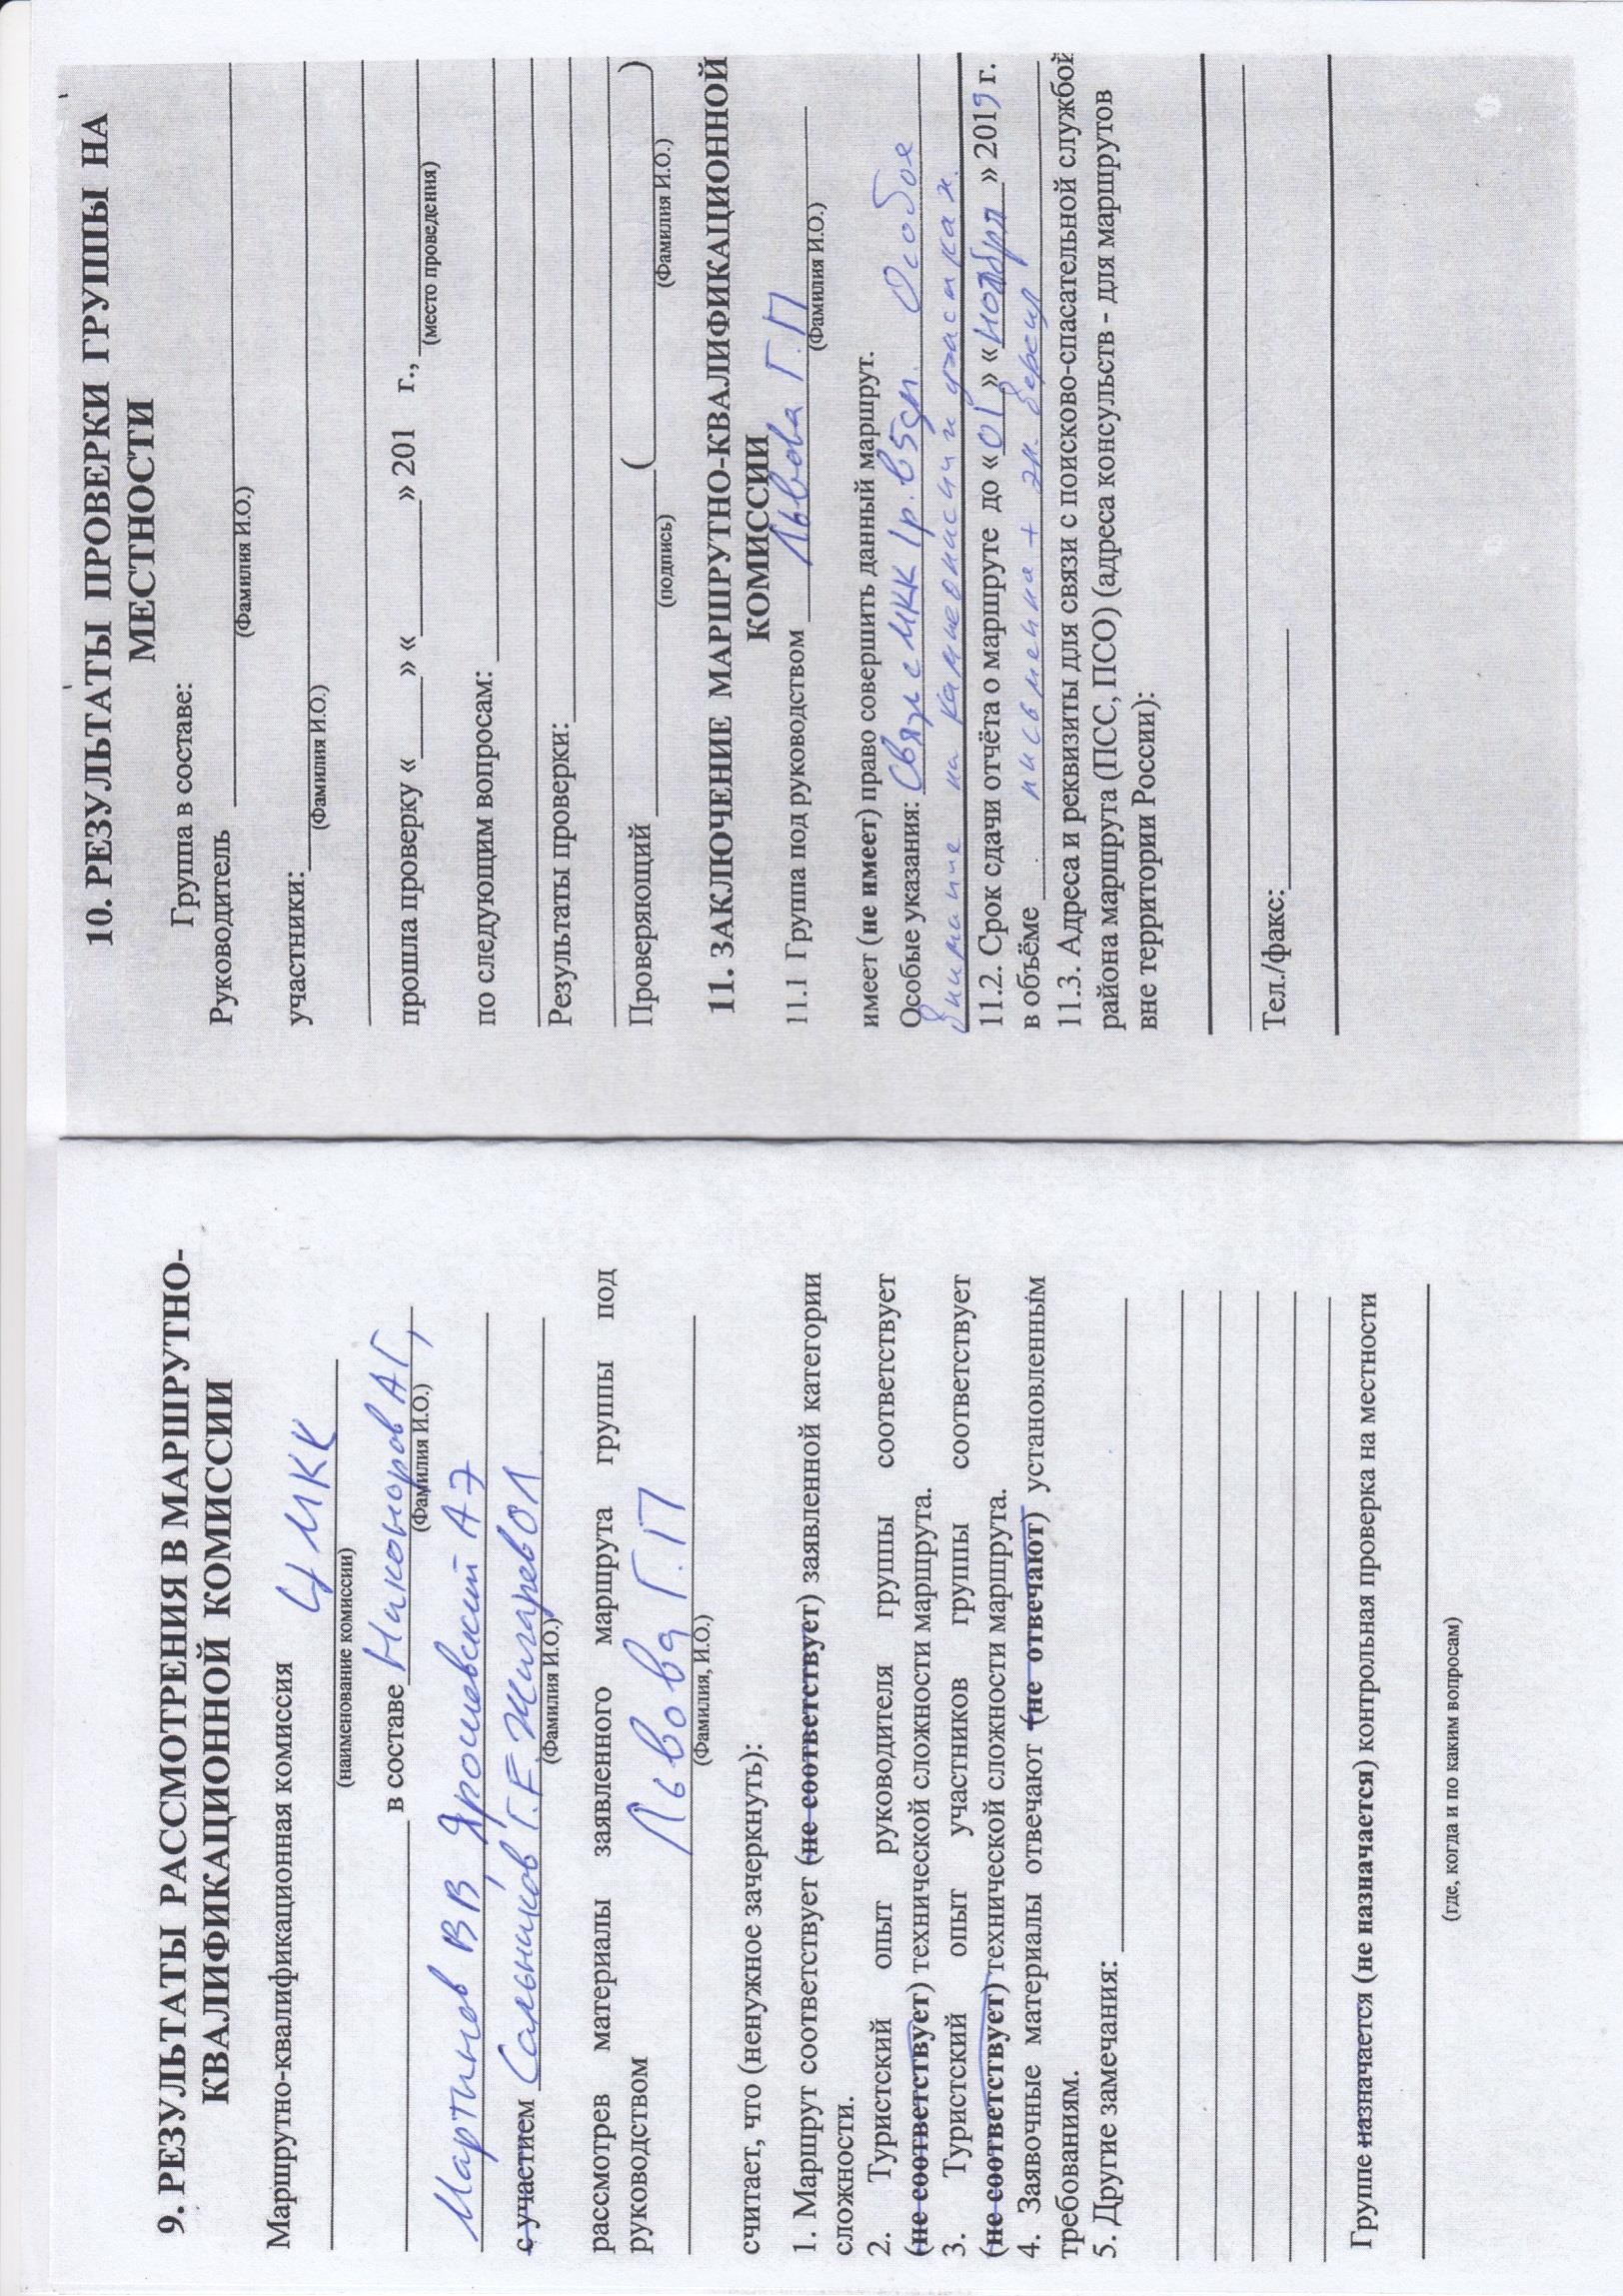 9. РЕЗУЛЬТАТЫ РАССМОТРЕНИЯ В МАРШРУТНО-
КВАЛИФИКАЦИОННОЙ КОМИССИИ
Маршрутно-квалификационная комиссия
ЦМКК
(наименование комиссии)
в составе Никоноров А Г,
(Фамилия И.О.)
Мартынов В В, Ярошевский А Э
с участием Сальников Г.Е. Жигарев О Л
(Фамилия И.О.)
рассмотрев материалы заявленного маршрута группы под
руководством Львова Г.П
(Фамилия, И.О.)
считает, что (ненужное зачеркнуть):
1. Маршрут соответствует (не соответствует) заявленной категории
сложности.
2. Туристский опыт руководителя группы соответствует
(не соответствует) технической сложности маршрута.
3. Туристский опыт участников группы соответствует
(не соответствует) технической сложности маршрута.
4. Заявочные материалы отвечают (не отвечают) установленным
требованиям.
5. Другие замечания:
Группе назначается (не назначается) контрольная проверка на местности
(где, когда и по каким вопросам)
10. РЕЗУЛЬТАТЫ ПРОВЕРКИ ГРУППЫ НА
МЕСТНОСТИ
Группа в составе:
Руководитель
(Фамилия И.О.)
участники:
(Фамилия И.О.)
прошла проверку « » « » 201 г.,
(место проведения)
по следующим вопросам:
Результаты проверки:
Проверяющий ( )
(подпись) (Фамилия И.О.)
11. ЗАКЛЮЧЕНИЕ МАРШРУТНО-КВАЛИФИКАЦИОННОЙ
КОМИССИИ
11.1 Группа под руководством Львова Г.П
(Фамилия И.О.)
имеет (не имеет) право совершить данный маршрут.
Особые указания: Связь с МКК 1р. в 5 дн. Особое
внимание на камнеопасных участках.
11.2. Срок сдачи отчёта о маршруте до «01» «ноября» 2019 г.
в объёме письменна + эл. версия
11.3. Адреса и реквизиты для связи с поисково-спасательной службой
района маршрута (ПСС, ПСО) (адреса консульств - для маршрутов
вне территории России):
Тел./факс: